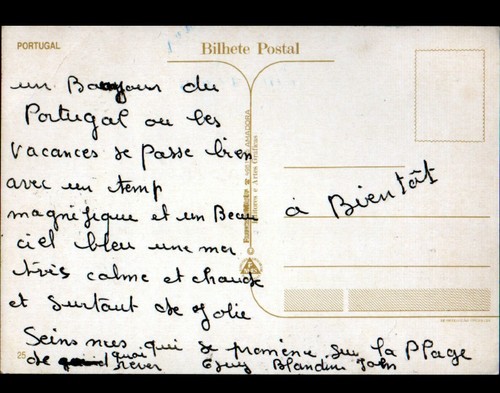 PORTUGAL
Bilhete Postal
un Bonjour du
Portugal ou les
vacances se passe bien
avec un temp
magnifique et un Beau
ciel bleu une mer
très calme et chaude
et surtout de Jolie
Seins nues qui se promène sur la Plage
de quoi rêver Blandine John
à Bientôt
25